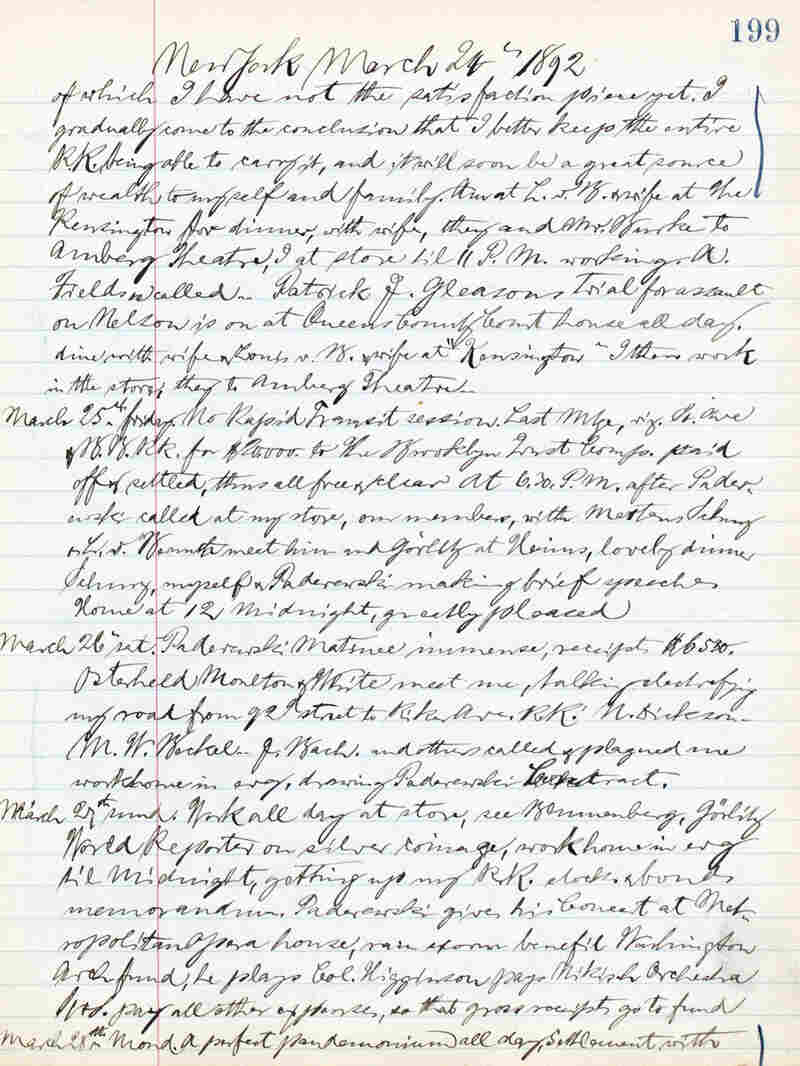 199
New York March 24th 1892
of which I have not the satisfaction piece yet. I
gradually come to the conclusion that I better keep the entire
RR. being able to carry it, and it will soon be a great source
of wealth to myself and family. Am at L. v. B. & wife at the
Kensington for dinner, with wife, they and Mr. Burke to
Amberg Theatre, I at store til 11 P. M. working. A.
Fields called. Patrick J. Gleasons trial for assault
on Nelson is on at Queens County Court house all day.
dine with wife & Louis v. B. & wife at "Kensington" I then work
in the store, they to Amberg Theatre.
March 25th friday. No Rapid Transit session. Last Mtge, viz. St. Ave
& B. B. RR. for $20000. to the Brooklyn Trust Comp. paid
off & settled, thus all free & clear At 6.30. P.M. after Pader-
ewski called at my store, our members, with Mertens Schurz
& L. v. Bernuth meet him and Görlitz at Heims, lovely dinner
Schurz, myself & Paderewski making brief speeches
Home at 12 Midnight, greatly pleased
March 26th sat. Paderewski Matinee immense, receipts $6500.
Osterheld Moulton & White meet me, talking electrifying
my road from 92d street to Riker Ave. RR. N. Dickson
M. W. Beckel. J. Bach. and others called & plagued me
work home in evg. drawing Paderewski Contract.
March 27th sund. Work all day at store, see Blumenberg, Görlitz
World Reporter on silver coinage, work home in evg
til Midnight, getting up my RR. stock & bonds
memorandum. Paderewski gives his Concert at Met-
ropolitan Opera house, benefit Washington
Arch fund, he plays Col. Higginson pays Nikisch Orchestra
pay all other expenses, so that gross receipts go to fund
March 28th Mond. A perfect pandemonium all day, Settlement with